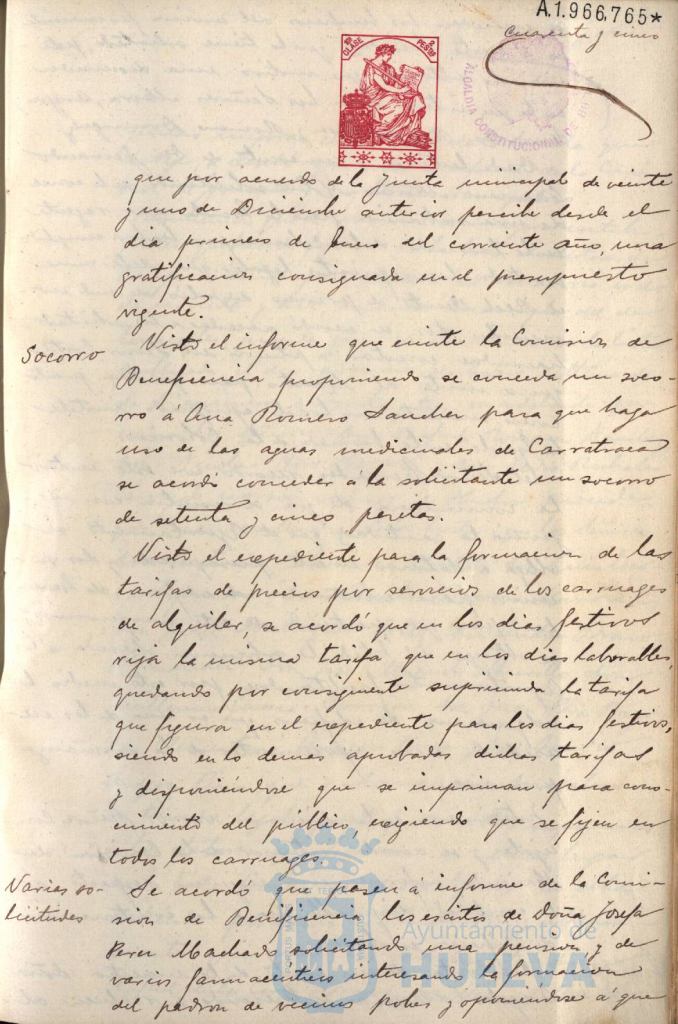 A.1.966,765*
Cuarenta y cinco
CLASE PESTAS
ALCALDIA CONSTITUCIONAL DE
que por acuerdo de la Junta municipal de veinte
y uno de Diciembre anterior percibe desde el
dia primero de Enero del corriente año, una
gratificacion consignada en el presupuesto
vigente.
Socorro
Visto el informe que emite la Comision de
Beneficiencia proponiendo se conceda un soco-
rro á Ana Romero Sanchez para que haga
uso de las aguas medicinales de Carratraca
se acordó conceder á la solicitante un socorro
de setenta y cinco pesetas.
Visto el expediente para la formacion de las
tarifas de precios por servicios de los carruages
de alquiler, se acordó que en los dias festivos
rija la misma tarifa que en los dias laborables,
quedando por consiguiente suprimida la tarifa
que figura en el expediente para los dias festivos,
siendo en lo demas aprobadas dichas tarifas
y disponiendose que se impriman para cono-
cimiento del público, exigiendo que se fijen en
todos los carruages.
Varias so-
licitudes
Se acordó que pasen á informe de la Comi-
sion de Beneficencia los escritos de Doña Josefa
Perez Machado solicitando una pension y de
varios farmacéuticos interesando la formacion
del padron de vecinos pobres y oponiendose á que
Ayuntamiento de
HUELVA